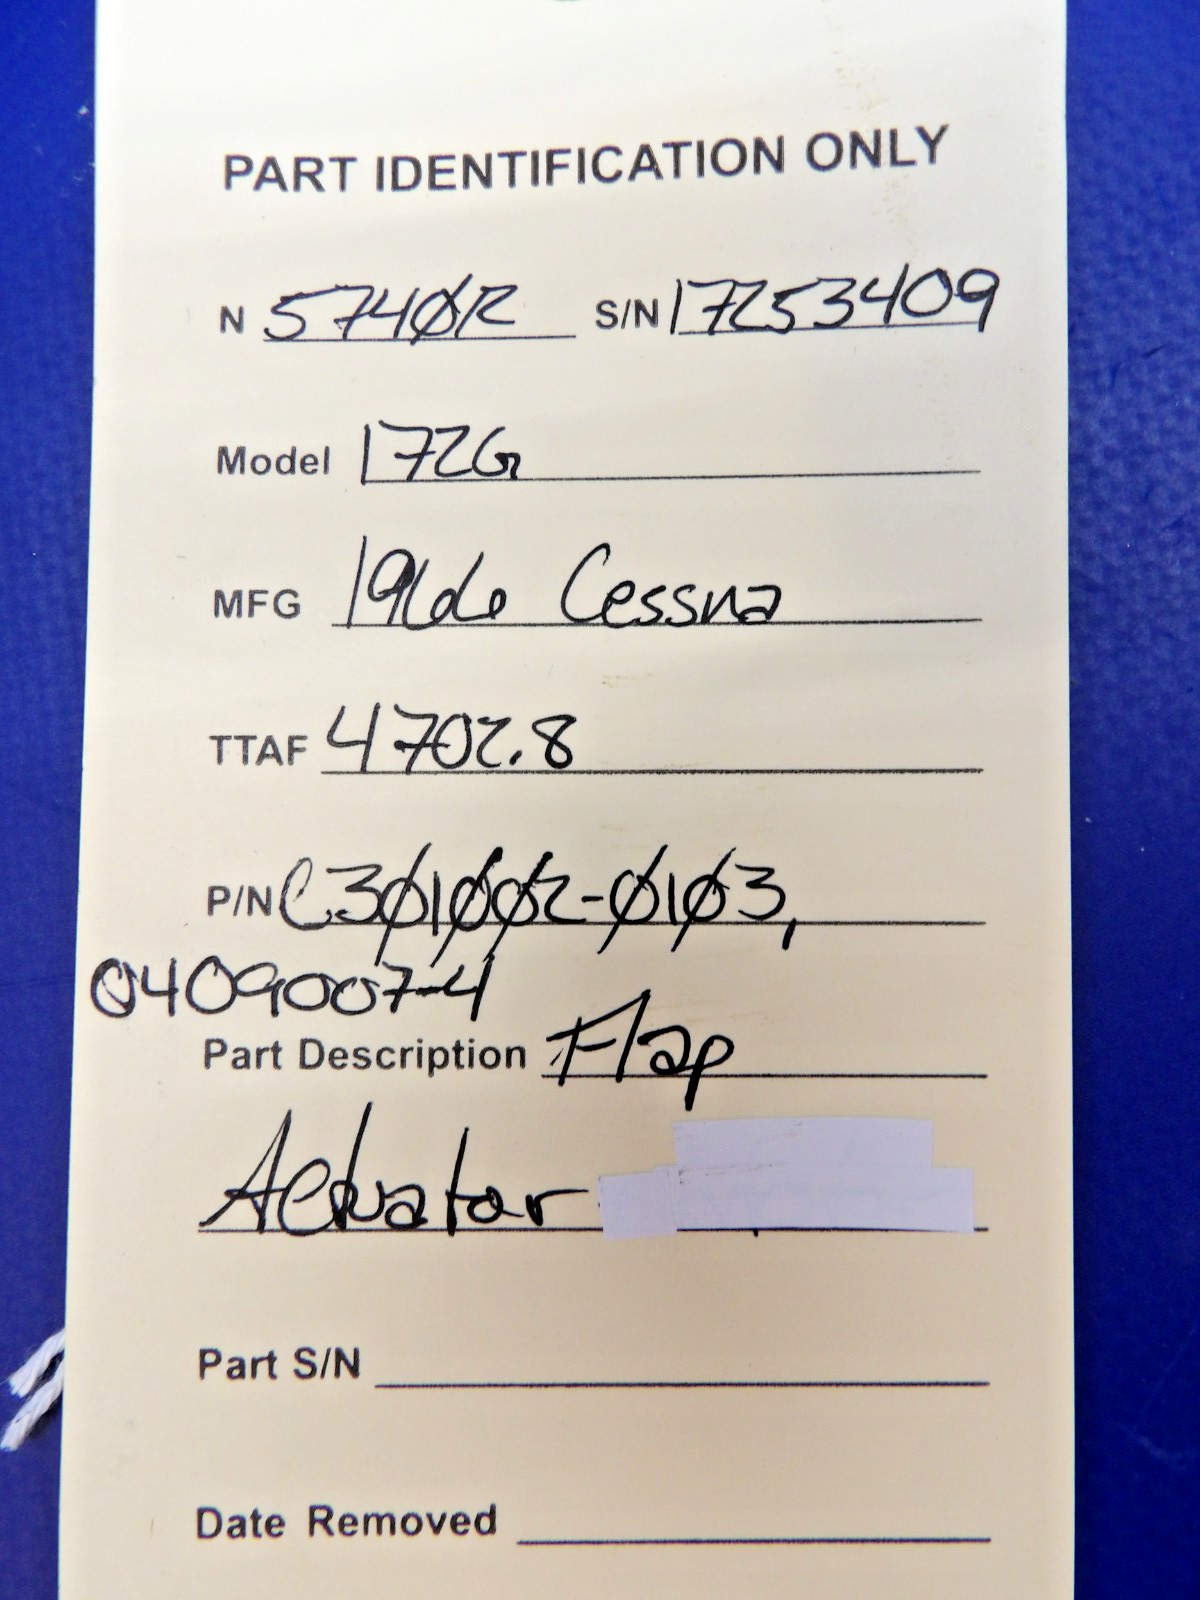 PART IDENTIFICATION ONLY
N 5740R S/N 17253409
Model 172G
MFG 1966 Cessna
TTAF 4702.8
P/N C301002-0103,
0409007-4
Part Description Flap
Actuator
Part S/N
Date Removed